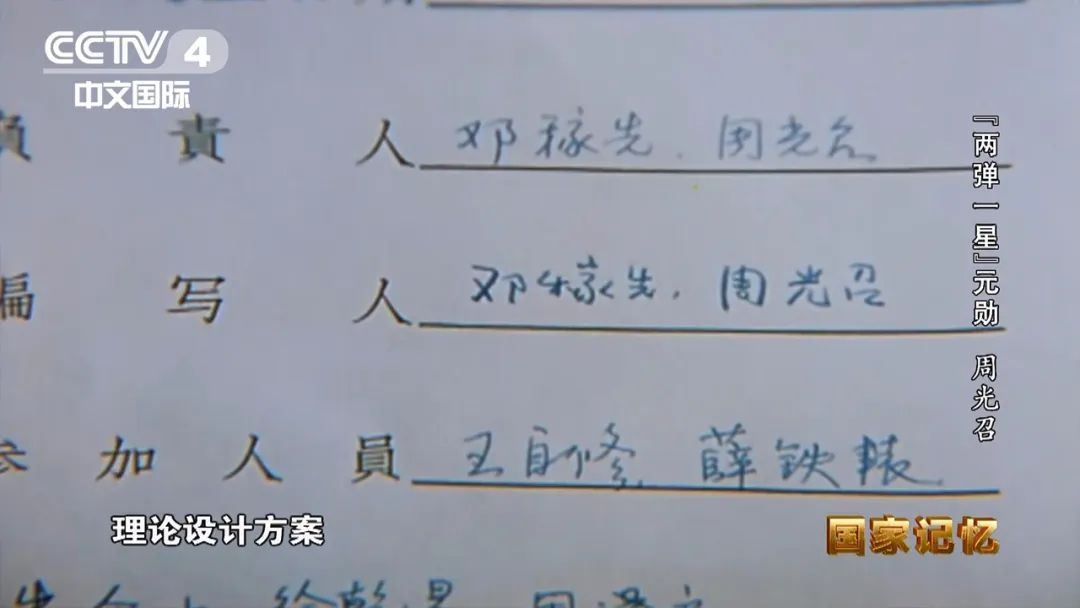 CCTV 4
中文国际
責 人 邓稼先、周光召
写 人 邓稼先、周光召
参 加 人 員 王自修 薛铁辕
理论设计方案
『两弹一星』元勋 周光召
国家记忆